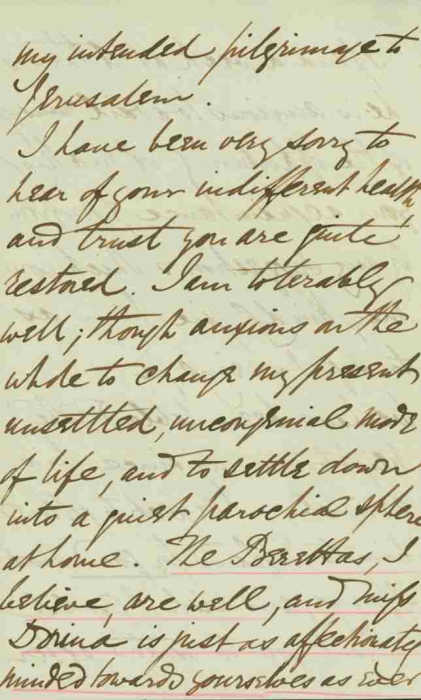 my intended pilgrimage to
Jerusalem.
I have been very sorry to
hear of your indifferent health
and trust you are quite
restored. I am tolerably
well; though anxious on the
whole to change my present
unsettled, uncongenial mode
of life, and to settle down
into a quiet parochial sphere
at home. The Berettas, I
believe, are well, and Miss
Dorina is just as affectionately
minded towards yourselves as ever